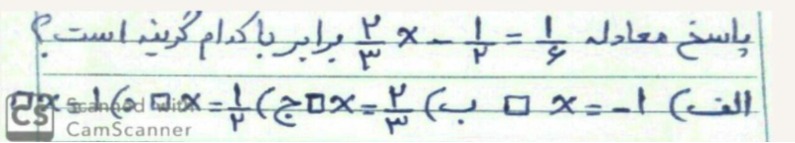 پاسخ معادله ۲/۳ x - ۱/۲ = ۱/۶ برابر با کدام گزینه است؟
الف) x = -۱ □ ب) x = ۲/۳ □ ج) x = ۱/۲ □ د) x = ۱ □
CS Scanned with
CamScanner